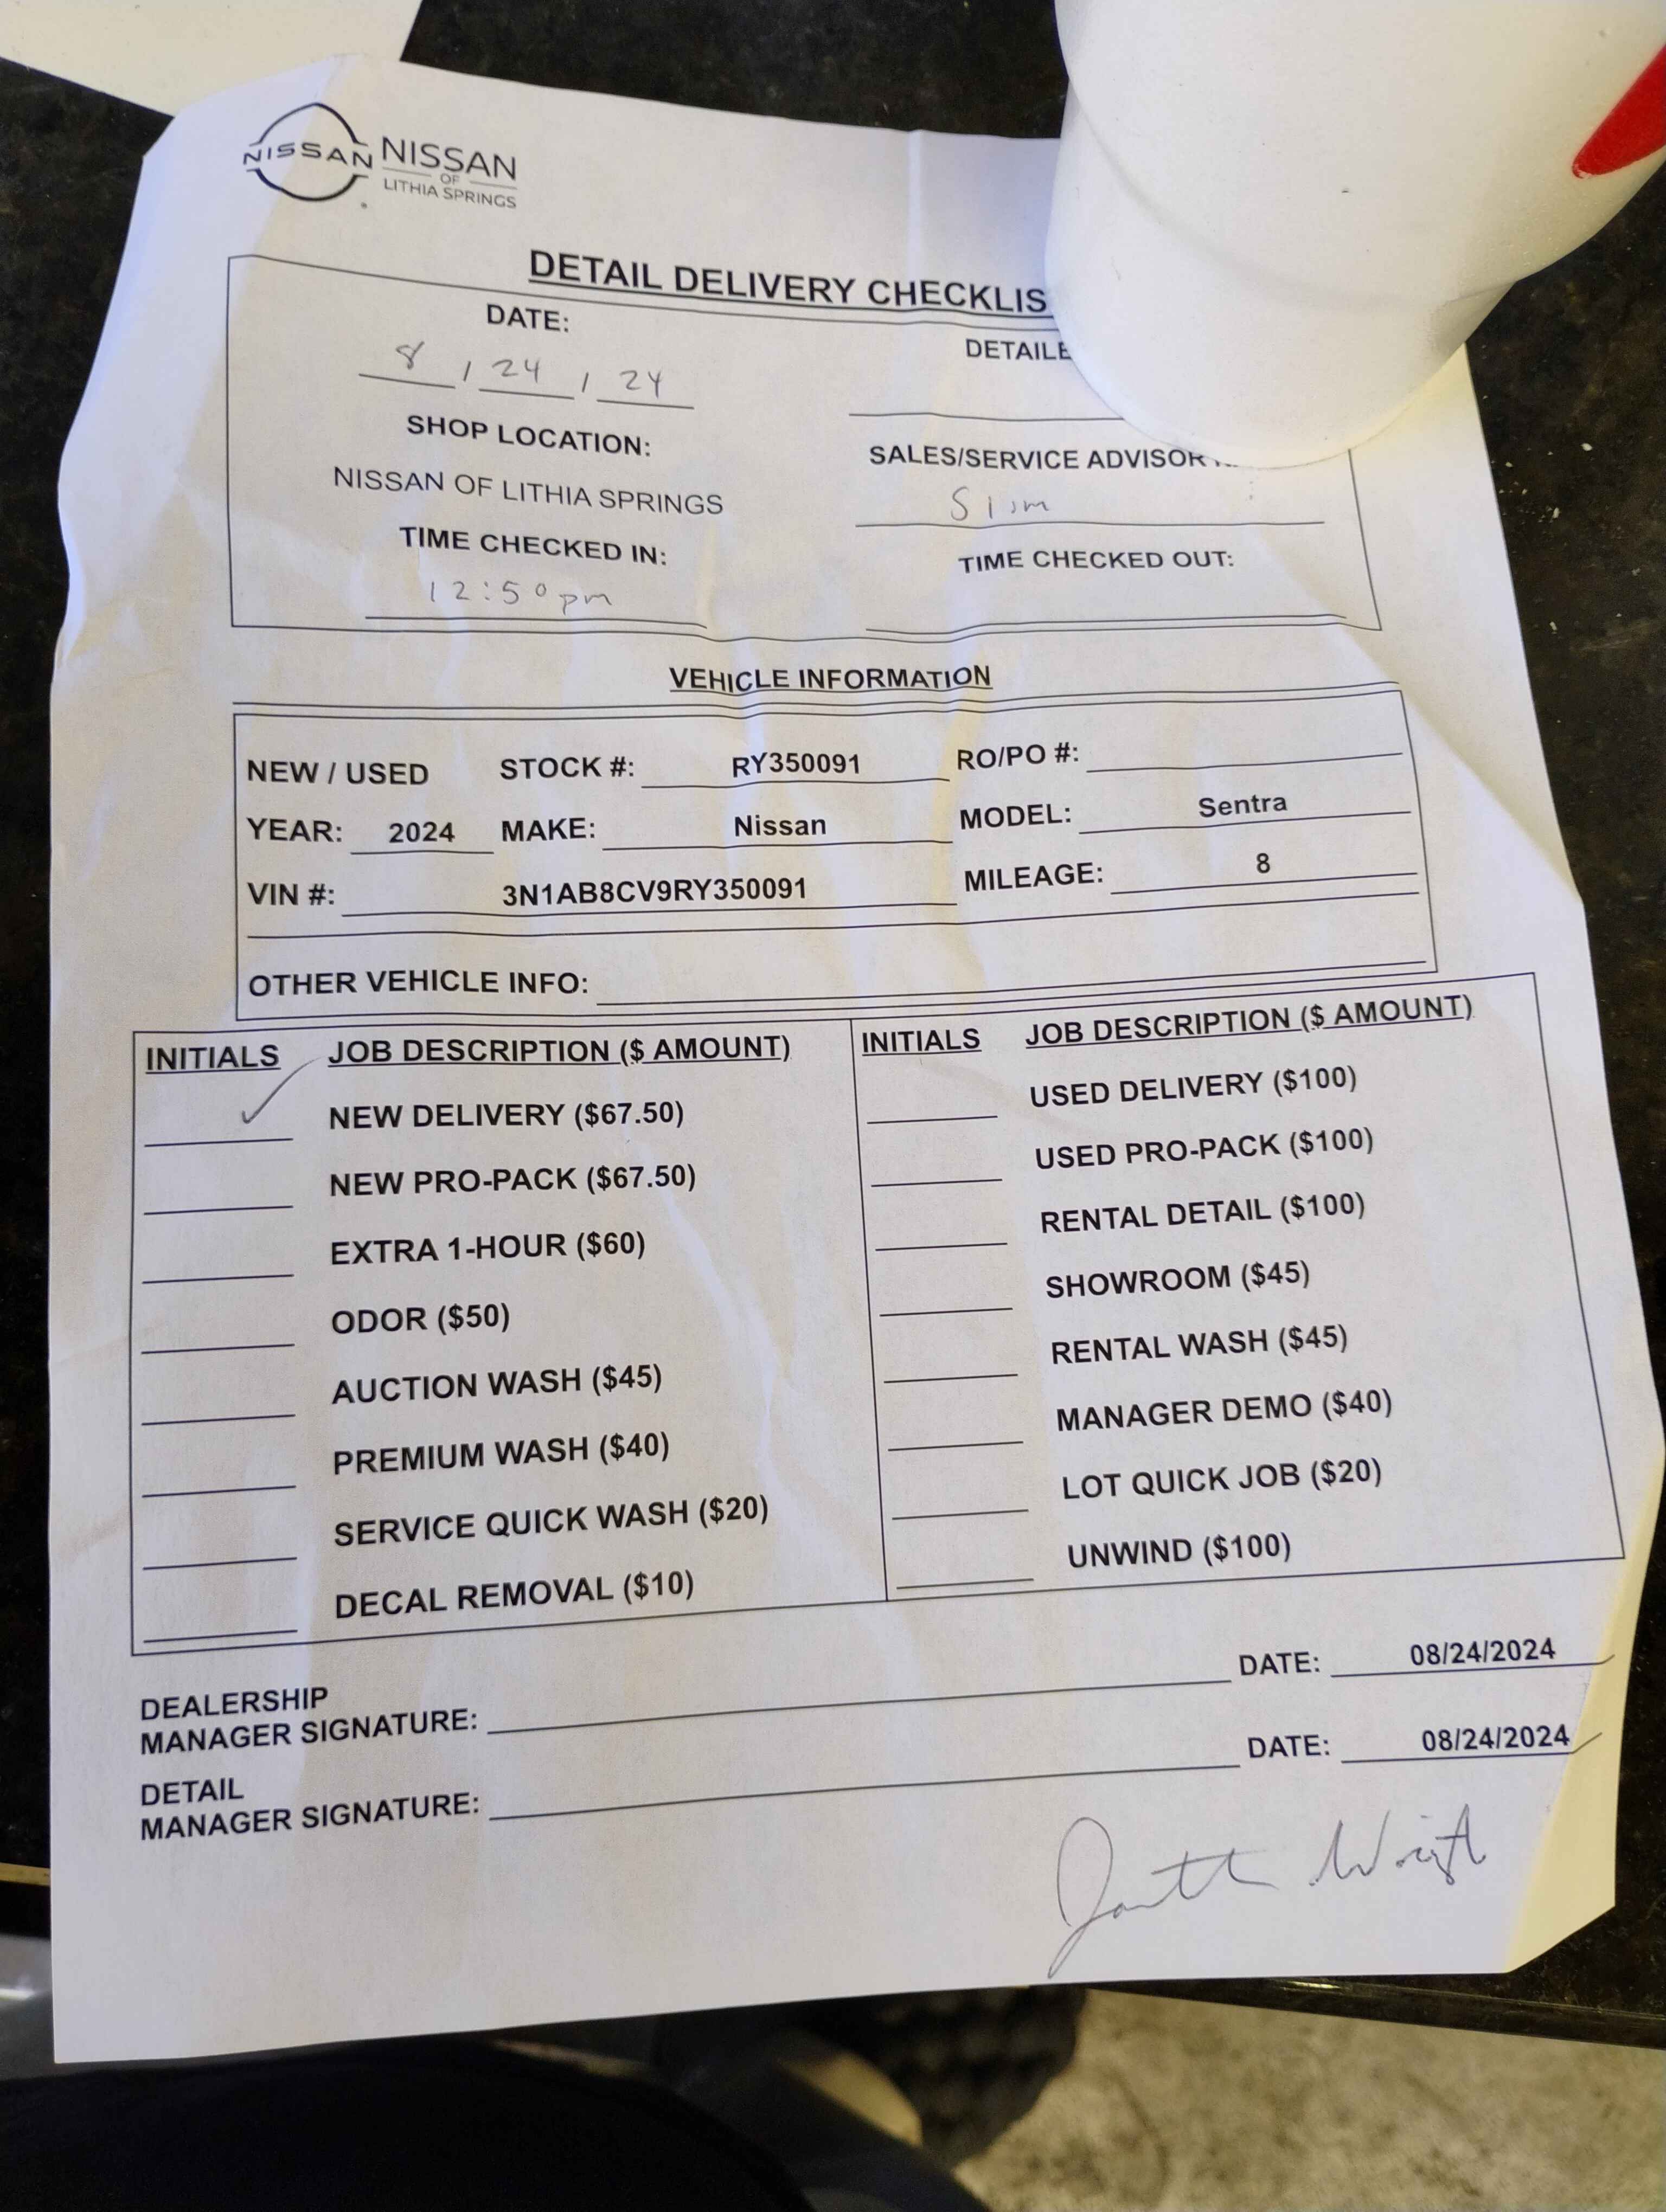 NISSAN NISSAN
OF
LITHIA SPRINGS
DETAIL DELIVERY CHECKLIS
DATE:
8 / 24 / 24
DETAILE
SHOP LOCATION:
NISSAN OF LITHIA SPRINGS
SALES/SERVICE ADVISOR
Slim
TIME CHECKED IN:
12:50pm
TIME CHECKED OUT:
VEHICLE INFORMATION
NEW / USED STOCK #: RY350091 RO/PO #:
YEAR: 2024 MAKE: Nissan MODEL: Sentra
VIN #: 3N1AB8CV9RY350091 MILEAGE: 8
OTHER VEHICLE INFO:
INITIALS JOB DESCRIPTION ($ AMOUNT)
✓ NEW DELIVERY ($67.50)
NEW PRO-PACK ($67.50)
EXTRA 1-HOUR ($60)
ODOR ($50)
AUCTION WASH ($45)
PREMIUM WASH ($40)
SERVICE QUICK WASH ($20)
DECAL REMOVAL ($10)
INITIALS JOB DESCRIPTION ($ AMOUNT)
USED DELIVERY ($100)
USED PRO-PACK ($100)
RENTAL DETAIL ($100)
SHOWROOM ($45)
RENTAL WASH ($45)
MANAGER DEMO ($40)
LOT QUICK JOB ($20)
UNWIND ($100)
DEALERSHIP
MANAGER SIGNATURE: DATE: 08/24/2024
DETAIL
MANAGER SIGNATURE: DATE: 08/24/2024